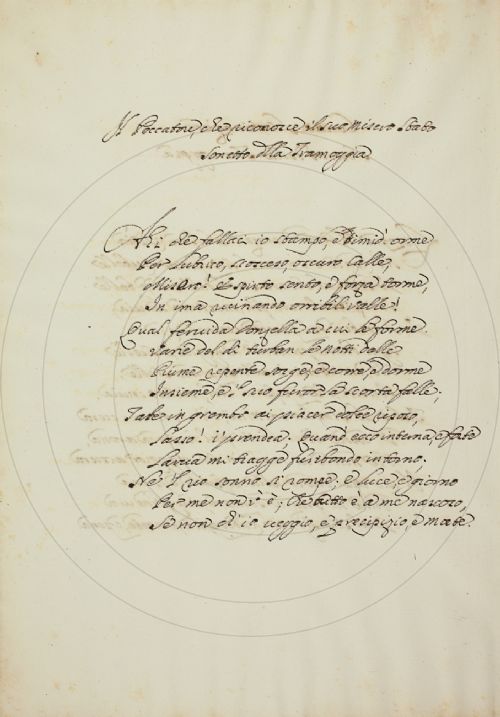 Il Peccatore, che riconosce il suo misero stato
Sonetto della Tramoggia
Ahi che fallaci io stampo, e dimidi orme
Per lubrico, scosceso, oscuro calle,
Misero! e spinto sento, e forza torme,
In ima ruinando orribil valle!
Qual fervida Donzella a cui le forme
Varie del dì turban le notti dalle
Piume repente sorge, e corre, e dorme
Insieme, e 'l suo furor la scorta falle,
Tale in grembo ai piacer dolce riposo,
Lasso! i' prendea. Quand' ecco interna, e forte
Larva mi tragge furibondo intorno.
Ne 'l rio sonno si rompe. e luce, e giorno
Per me non v' è; Che tutto è a me nascoso,
Se non ch' io veggio, e precipizio, e Morte.